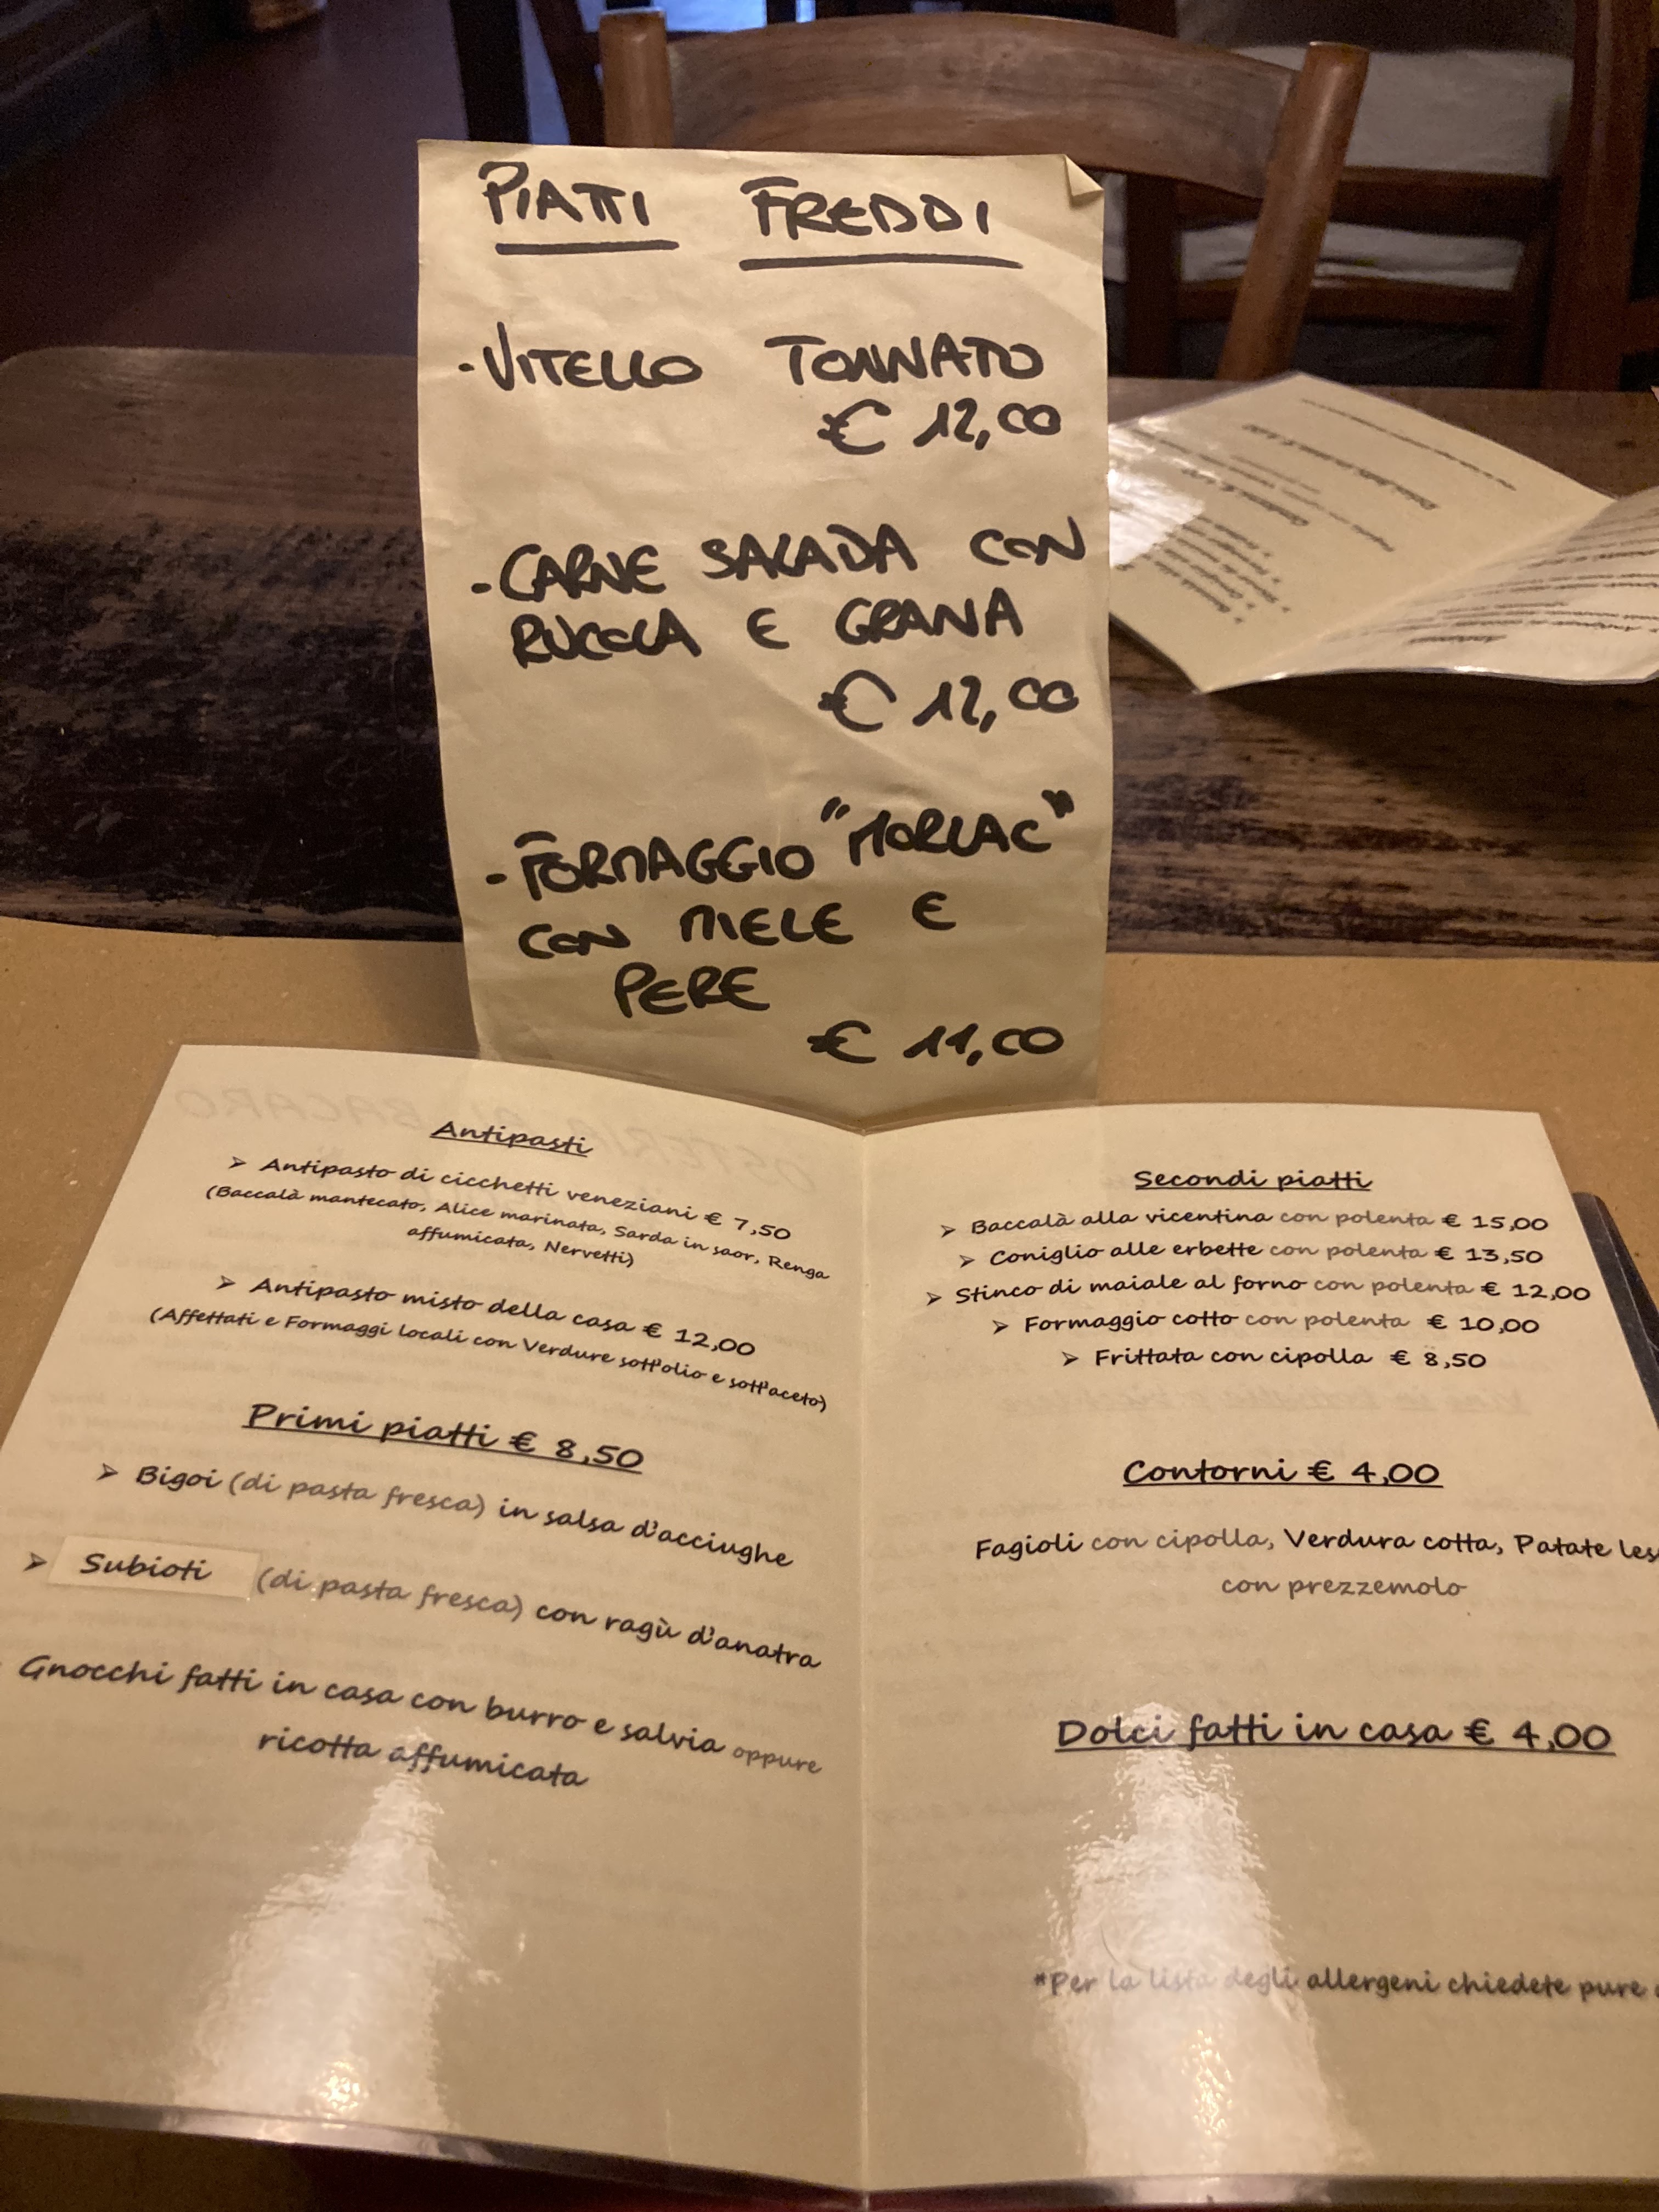 PIATTI FREDDI
- VITELLO TONNATO
€ 12,00
- CARNE SALADA CON
RUCOLA E GRANA
€ 12,00
- FORMAGGIO "MORLAC"
CON MIELE E
PERE
€ 11,00
Antipasti
➢ Antipasto di cicchetti veneziani € 7,50
(Baccalà mantecato, Alice marinata, Sarda in saor, Renga
affumicata, Nervetti)
➢ Antipasto misto della casa € 12,00
(Affettati e Formaggi locali con Verdure sott'olio e sott'aceto)
Primi piatti € 8,50
➢ Bigoi (di pasta fresca) in salsa d'acciughe
➢ Subioti (di pasta fresca) con ragù d'anatra
Gnocchi fatti in casa con burro e salvia oppure
ricotta affumicata
Secondi piatti
➢ Baccalà alla vicentina con polenta € 15,00
➢ Coniglio alle erbette con polenta € 13,50
➢ Stinco di maiale al forno con polenta € 12,00
➢ Formaggio cotto con polenta € 10,00
➢ Frittata con cipolla € 8,50
Contorni € 4,00
Fagioli con cipolla, Verdura cotta, Patate les
con prezzemolo
Dolci fatti in casa € 4,00
*Per la lista degli allergeni chiedete pure